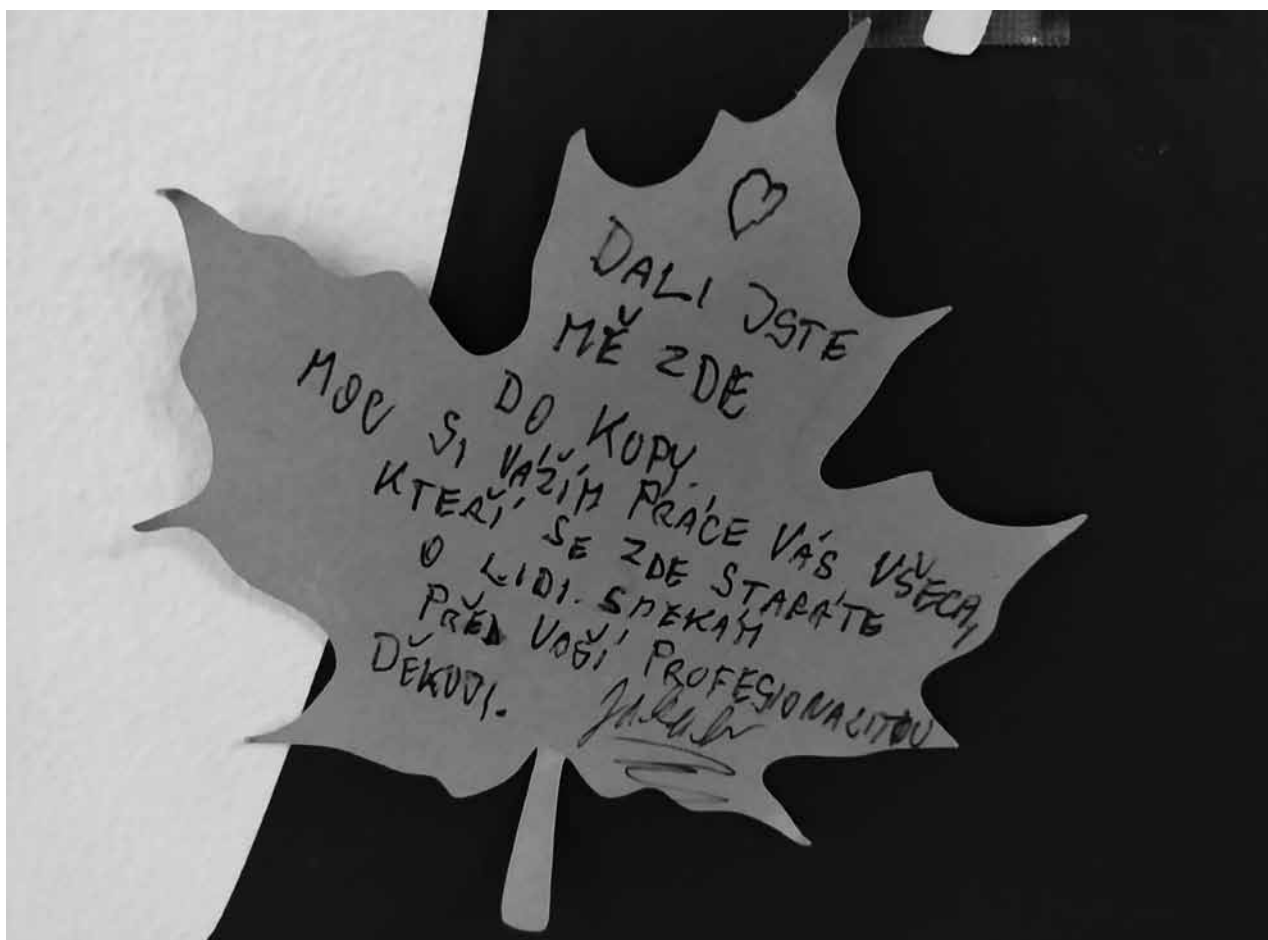 DALI JSTE
MĚ ZDE
DO KUPY.
MOC SI VÁŽÍM PRÁCE VÁS VŠECH,
KTEŘÍ SE ZDE STARÁTE
O LIDI. SMEKÁM
PŘED VAŠÍ PROFESIONALITOU
DĚKUJI.